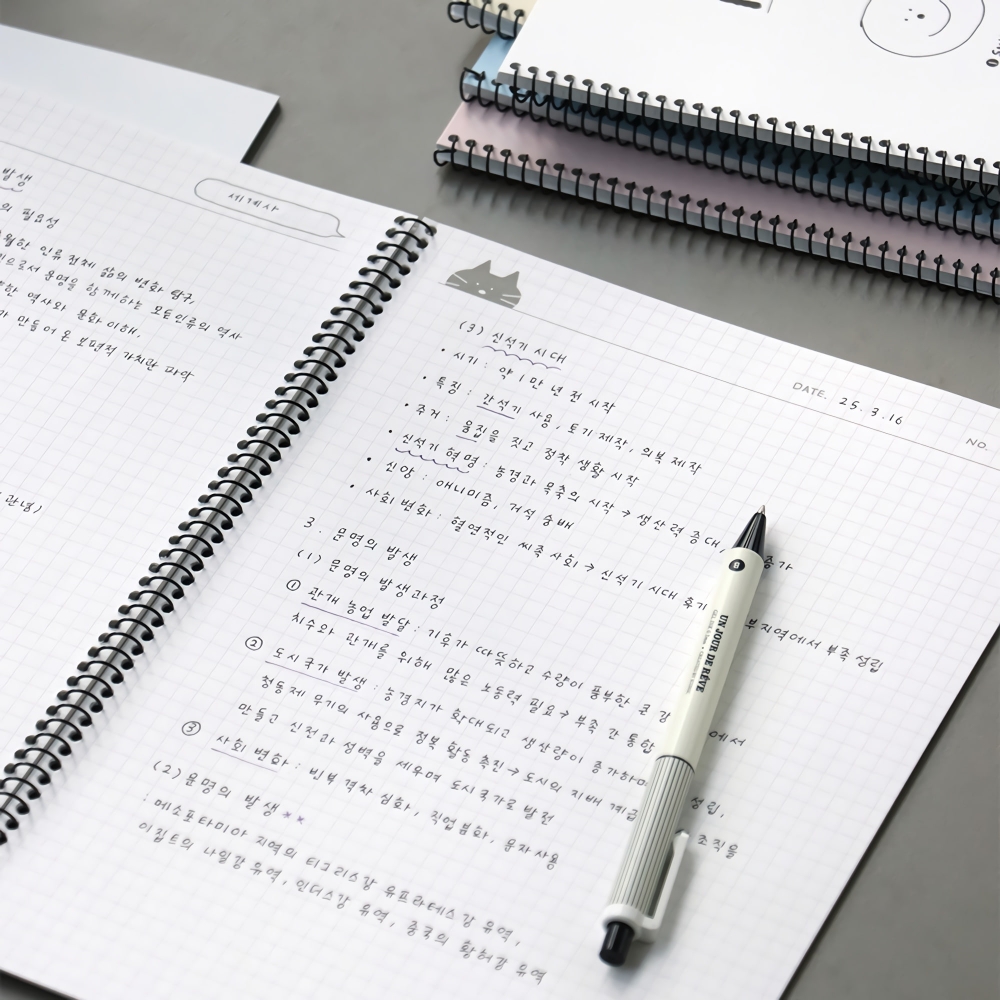 발생
의 필요성
세계사
인류 전체 삶의 변화 탐구,
으로서 문명을 함께하는 모든 인류의 역사
역사와 문화 이해,
만들어 온 보편적 가치관 파악
관념)
DATE. 25.3.16
NO.
(3) 신석기 시대
• 시기 : 약 1만 년 전 시작
• 특징 : 간석기 사용, 토기 제작, 의복 제작
• 주거 : 움집을 짓고 정착 생활 시작
• 신석기 혁명 : 농경과 목축의 시작 → 생산력 증대, 증가
• 신앙 : 애니미즘, 거석 숭배
• 사회 변화 : 혈연적인 씨족 사회 → 신석기 시대 후기 부지역에서 부족 성립
3. 문명의 발생
(1) 문명의 발생과정
① 관개 농업 발달 : 기후가 따뜻하고 수량이 풍부한 큰 강 에서
치수와 관개를 위해 많은 노동력 필요 → 부족 간 통합
② 도시국가 발생 : 농경지가 확대되고 생산량이 증가하며 성립,
청동제 무기의 사용으로 정복 활동 촉진 → 도시의 지배 계급 조직을
만들고 신전과 성벽을 세우며 도시국가로 발전
③ 사회 변화 : 빈부 격차 심화, 직업 분화, 문자 사용
(2) 문명의 발생 **
: 메소포타미아 지역의 티그리스강 유프라테스강 유역,
이집트의 나일강 유역, 인더스강 유역, 중국의 황허강 유역
UN JOUR DE RÊVE
B